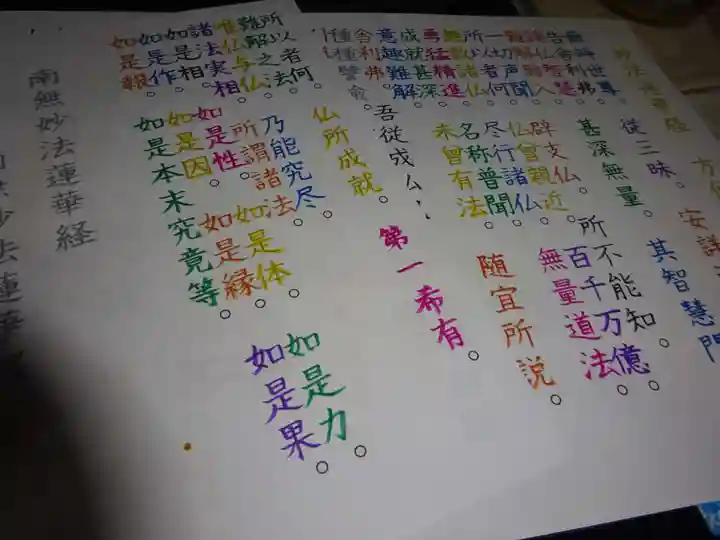 妙法蓮華経 方便
世尊 従三昧。 安詳
告舎利弗 甚深無量。 其智慧門
一切声聞 辟支仏 所不能知。
所以者何 仏曽親近 百千万億。
無数諸仏 尽行諸仏 無量道法。
勇猛精進 名称普聞。
成就甚深 未曽有法。 随宜所説。
意趣難解 吾従成仏 第一希有。
舎利弗
種種譬喩
所以者何。 仏所成就。
難解之法。
唯仏与仏。 乃能究尽。
諸法実相。 所謂諸法
如是相。 如是性。 如是体。 如是力。
如是作。 如是因。 如是縁。 如是果。
如是報。 如是本末究竟等。
南無妙法蓮華経
妙法蓮華